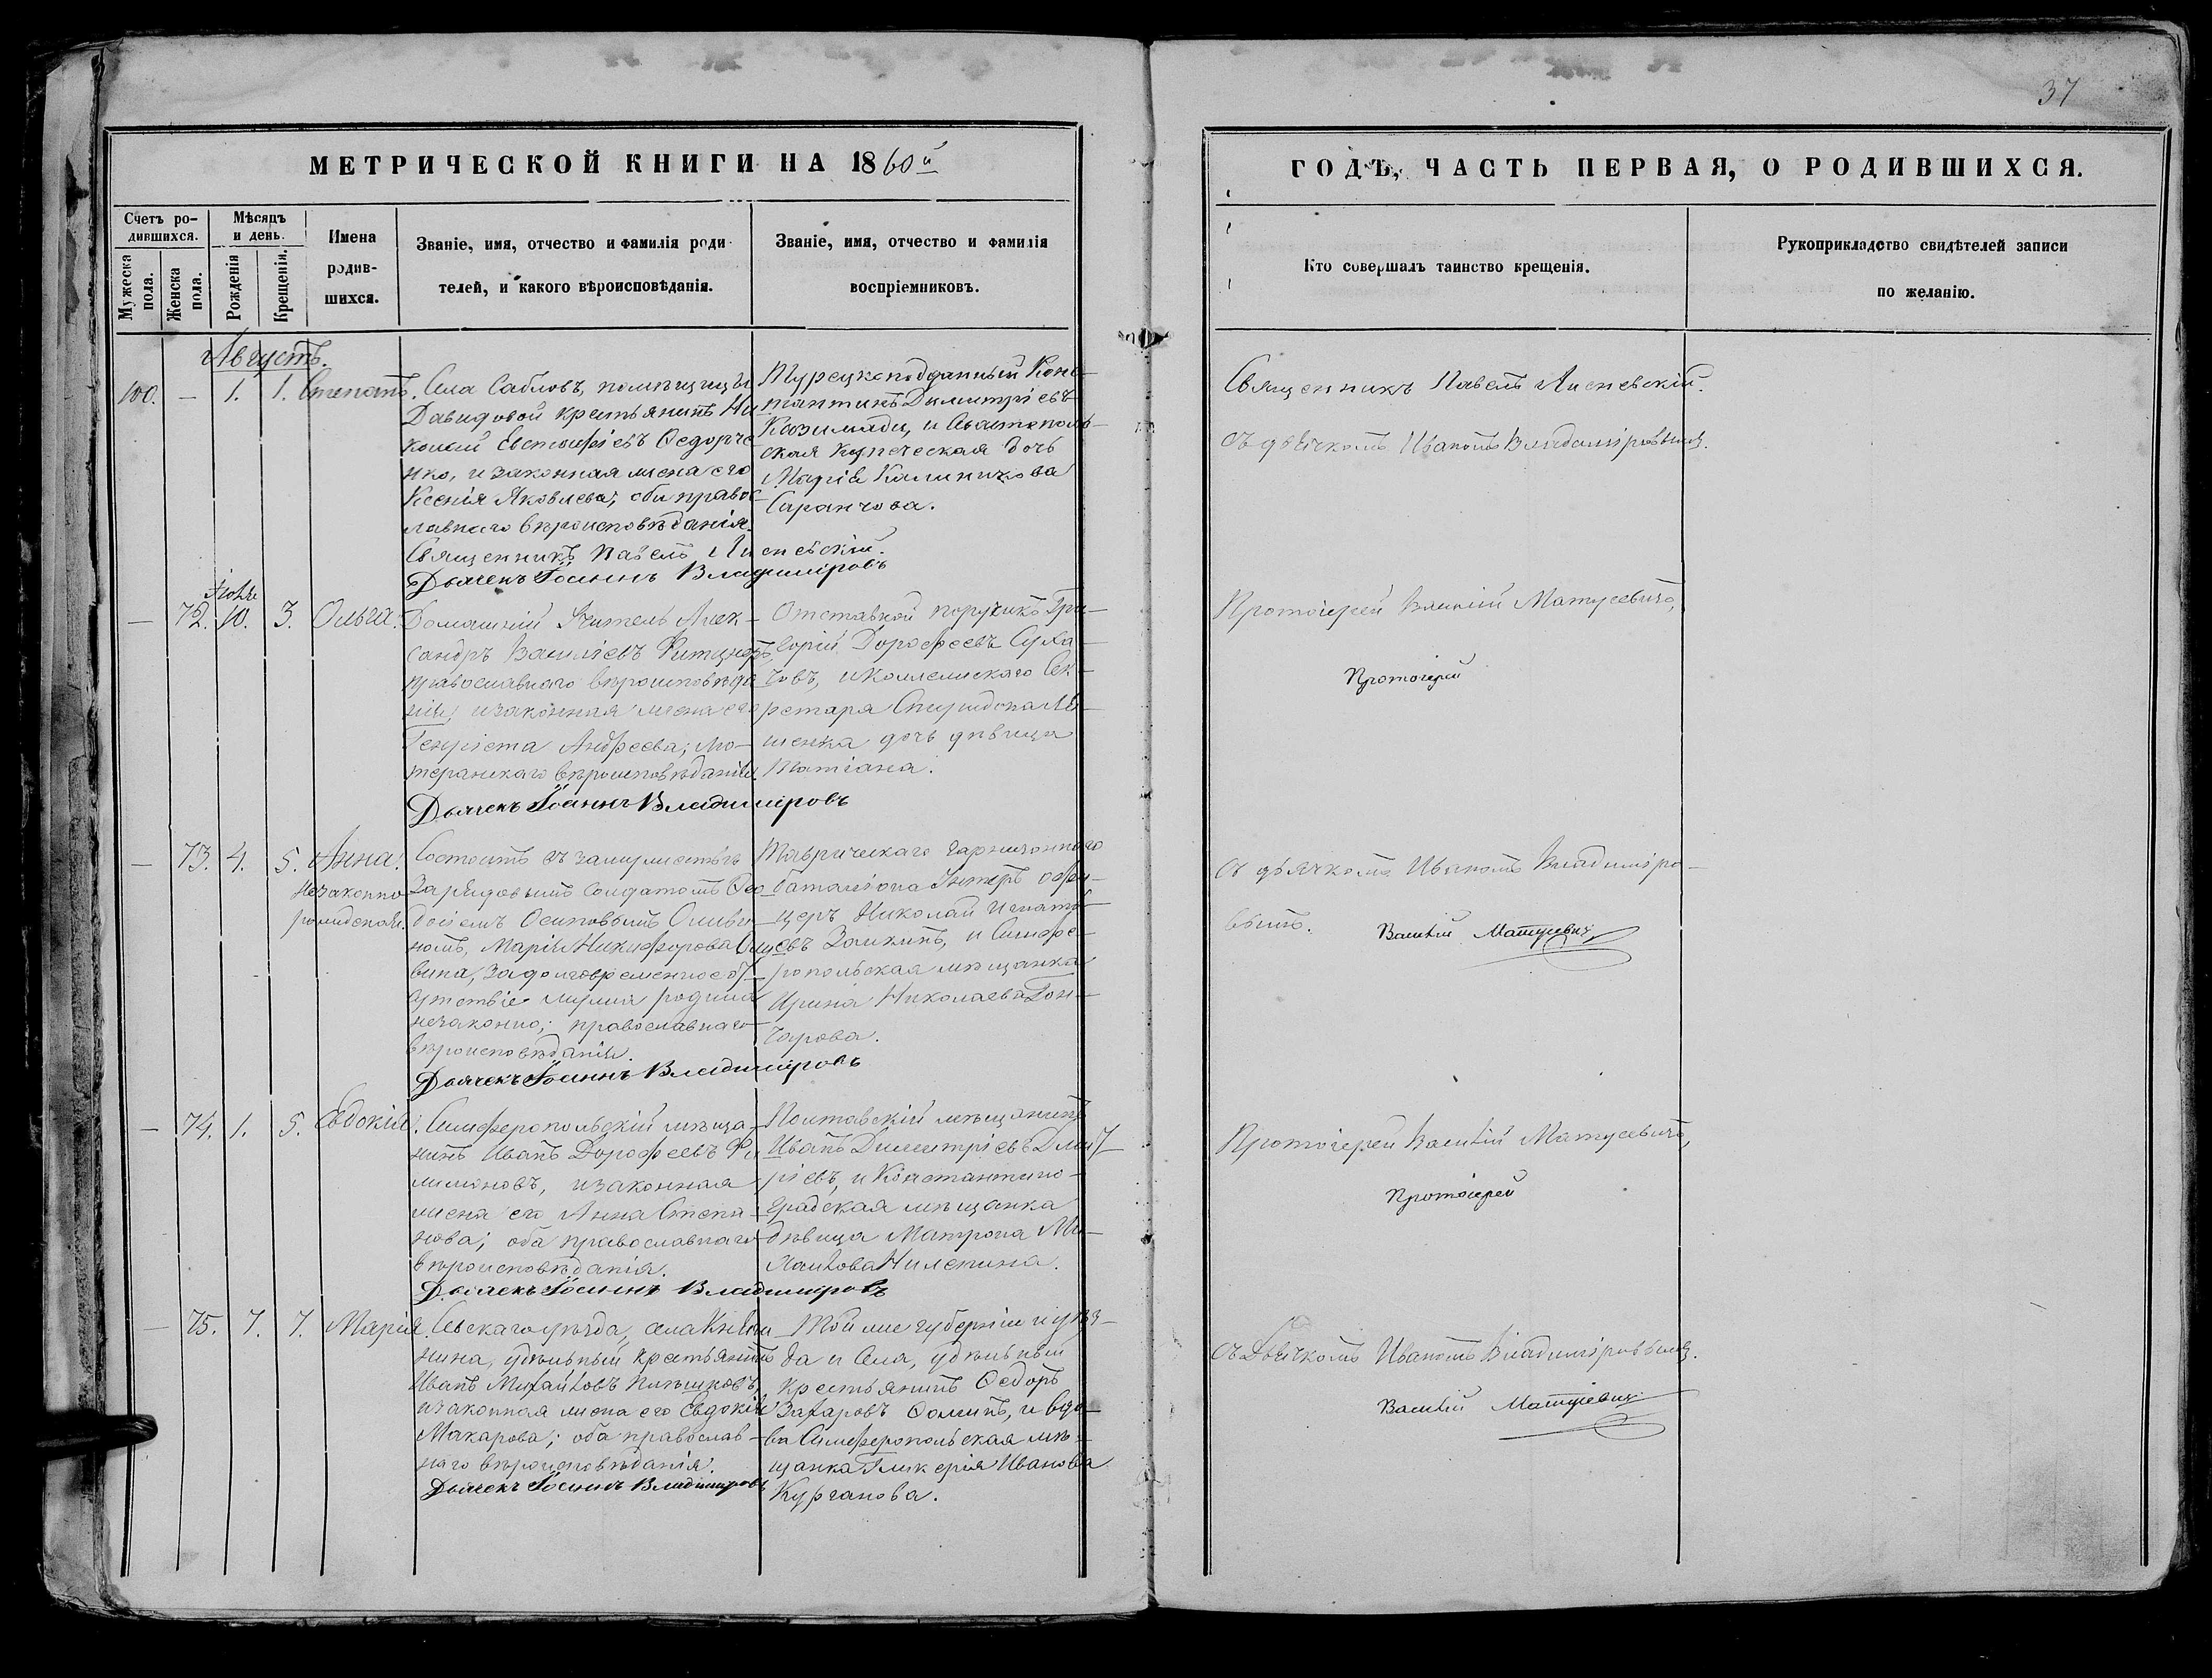 37
МЕТРИЧЕСКОЙ КНИГИ НА 1860й
ГОДЪ, ЧАСТЬ ПЕРВАЯ, О РОДИВШИХСЯ.
Счетъ ро-
дившихся.
Мужеска пола.
Женска пола.
Мѣсяцъ
и день.
Рожденія
Крещенія.
Имена
родив-
шихся.
Званіе, имя, отчество и фамилія роди-
телей, и какого вѣроисповѣданія.
Званіе, имя, отчество и фамилія
воспріемниковъ.
Кто совершалъ таинство крещенія.
Рукоприкладство свидѣтелей записи
по желанію.
Августъ.
100. — 1. 1. Степанъ.
Села Сабловъ, помѣщицы
Давидовой крестьянинъ Ни
колай Евстафіевъ Ѳедорче
нко, и законная жена его
Ксенія Яковлева; оба правос
лавнаго вѣроисповѣданія.
Священникъ Павелъ
Дьячекъ Іоаннъ Владиміровъ
Турецкоподданный Конс-
тантинъ Димитріевъ
и Севастополь-
ская купеческая дочь
Марія
Саранчова.
Священникъ Павелъ
съ дьячкомъ Иваномъ Владиміровымъ.
— 72. Іюля 10. 3. Ольга.
Домашній Учитель Алек-
сандръ Васильевъ
православнаго вѣроисповѣда
нія, и законная жена его
Генріета Андреева; лю-
теранскаго вѣроисповѣданія.
Дьячекъ Іоаннъ Владиміровъ
Отставной поручикъ Гри-
горій Дорофеевъ Суха-
човъ, и Коллежскаго Сек-
ретаря Спиридона
дочь дѣвица
Татіана.
Протоіерей Василій Матусевичъ,
Протоіерей
— 73. 4. 5. Анна.
незаконно-
рожденная.
Состоитъ въ замужествѣ
За рядовымъ солдатомъ Ѳео
досіемъ Осиповымъ
Марія Никифорова
за долговременное от-
сутствіе мужа родила
незаконно; православнаго
вѣроисповѣданія.
Дьячекъ Іоаннъ Владиміровъ
Таврическаго гарнизоннаго
баталіона Унтеръ офи-
церъ Николай Игнать-
евъ Заикинъ, и Симфе-
ропольская мѣщанка
Ирина Николаева Гон-
чарова.
съ дьячкомъ Иваномъ Владиміро-
вымъ.
Василій Матусевичъ
— 74. 1. 5. Евдокія.
Симферопольскій мѣща-
нинъ Иванъ Дорофеевъ Фи
лимоновъ, и законная
жена его Анна Степа-
нова; оба православнаго
вѣроисповѣданія.
Дьячекъ Іоаннъ Владиміровъ
Полтавскій мѣщанинъ
Иванъ Димитріевъ
и Константино-
градская мѣщанка
дѣвица Матрона Ми-
хайлова
Протоіерей Василій Матусевичъ,
Протоіерей
— 75. 7. 7. Марія.
Сѣвскаго уѣзда, села
удѣльный крестьянинъ
Иванъ Михайловъ
и законная жена его Евдокія
Макарова; оба православ-
наго вѣроисповѣданія.
Дьячекъ Іоаннъ Владиміровъ
Той же губерніи и уѣз-
да и Села, удѣльный
крестьянинъ Ѳедоръ
Захаровъ Ѳоминъ, и вдо-
ва Симферопольская мѣ-
щанка Гликерія Иванова
Курганова.
съ Дьячкомъ Иваномъ Владиміровымъ.
Василій Матусевичъ